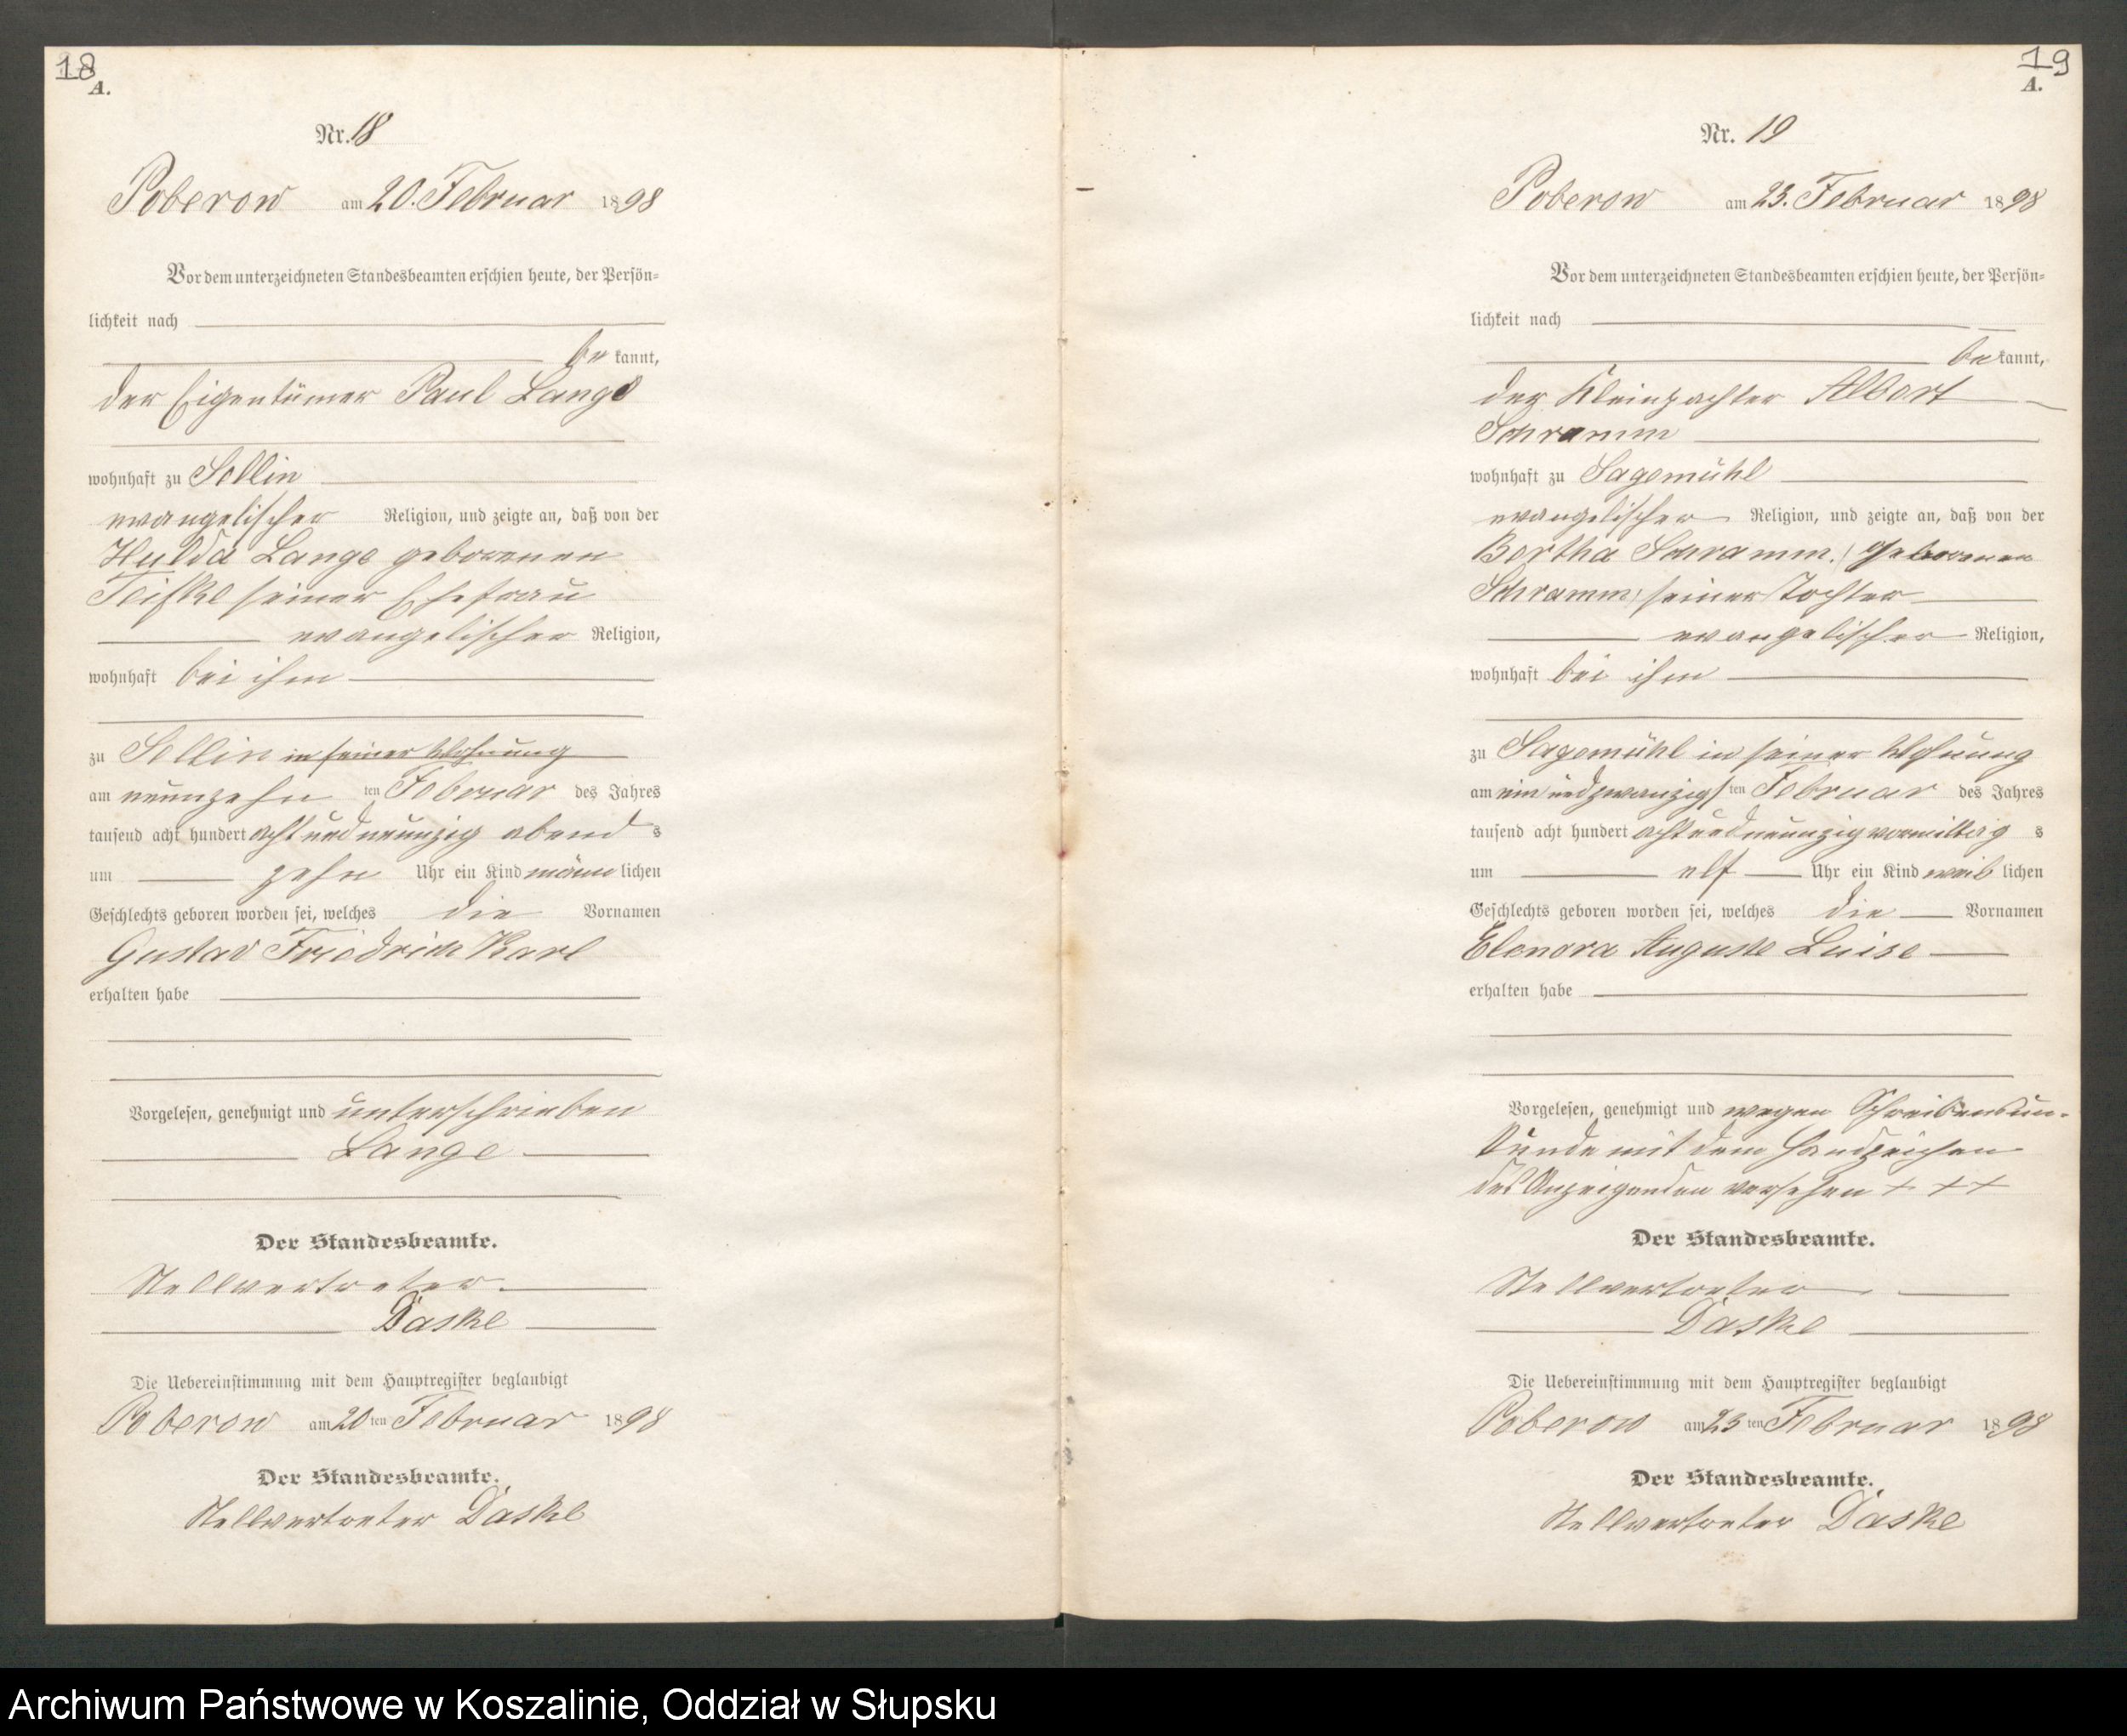 18
A.
Nr. 18
Poberow am 20. Februar 1898
Vor dem unterzeichneten Standesbeamten erschien heute, der Persön-
lichkeit nach
be kannt,
der Eigentümer Paul Lange
wohnhaft zu Sellin
evangelischer Religion, und zeigte an, daß von der
Hulda Lange geborenen
seiner Ehefrau
evangelischer Religion,
wohnhaft bei ihm
zu Sellin in seiner Wohnung
am neunzehn ten Februar des Jahres
tausend acht hundert acht und neunzig abend s
um zehn Uhr ein Kind männ lichen
Geschlechts geboren worden sei, welches die Vornamen
Gustav Friedrich Karl
erhalten habe
Vorgelesen, genehmigt und unterschrieben
Lange
Der Standesbeamte.
Stellvertreter
Daske
Die Uebereinstimmung mit dem Hauptregister beglaubigt
Poberow am 20 ten Februar 1898
Der Standesbeamte.
Stellvertreter Daske
19
A.
Nr. 19
Poberow am 23. Februar 1898
Vor dem unterzeichneten Standesbeamten erschien heute, der Persön-
lichkeit nach
be kannt,
der Kleinpachter Albert
Schramm
wohnhaft zu Sagemühl
evangelischer Religion, und zeigte an, daß von der
Bertha Schramm, geborenen
Schramm, seiner Tochter
evangelischer Religion,
wohnhaft bei ihm
zu Sagemühl in seiner Wohnung
am ein und zwanzigs ten Februar des Jahres
tausend acht hundert acht und neunzig vormittag s
um elf Uhr ein Kind weib lichen
Geschlechts geboren worden sei, welches die Vornamen
Elenora Auguste Luise
erhalten habe
Vorgelesen, genehmigt und wegen Schreibensun-
kunde mit dem Handzeichen
des Anzeigenden versehen + + +
Der Standesbeamte.
Stellvertreter
Daske
Die Uebereinstimmung mit dem Hauptregister beglaubigt
Poberow am 23 ten Februar 1898
Der Standesbeamte.
Stellvertreter Daske
Archiwum Państwowe w Koszalinie, Oddział w Słupsku